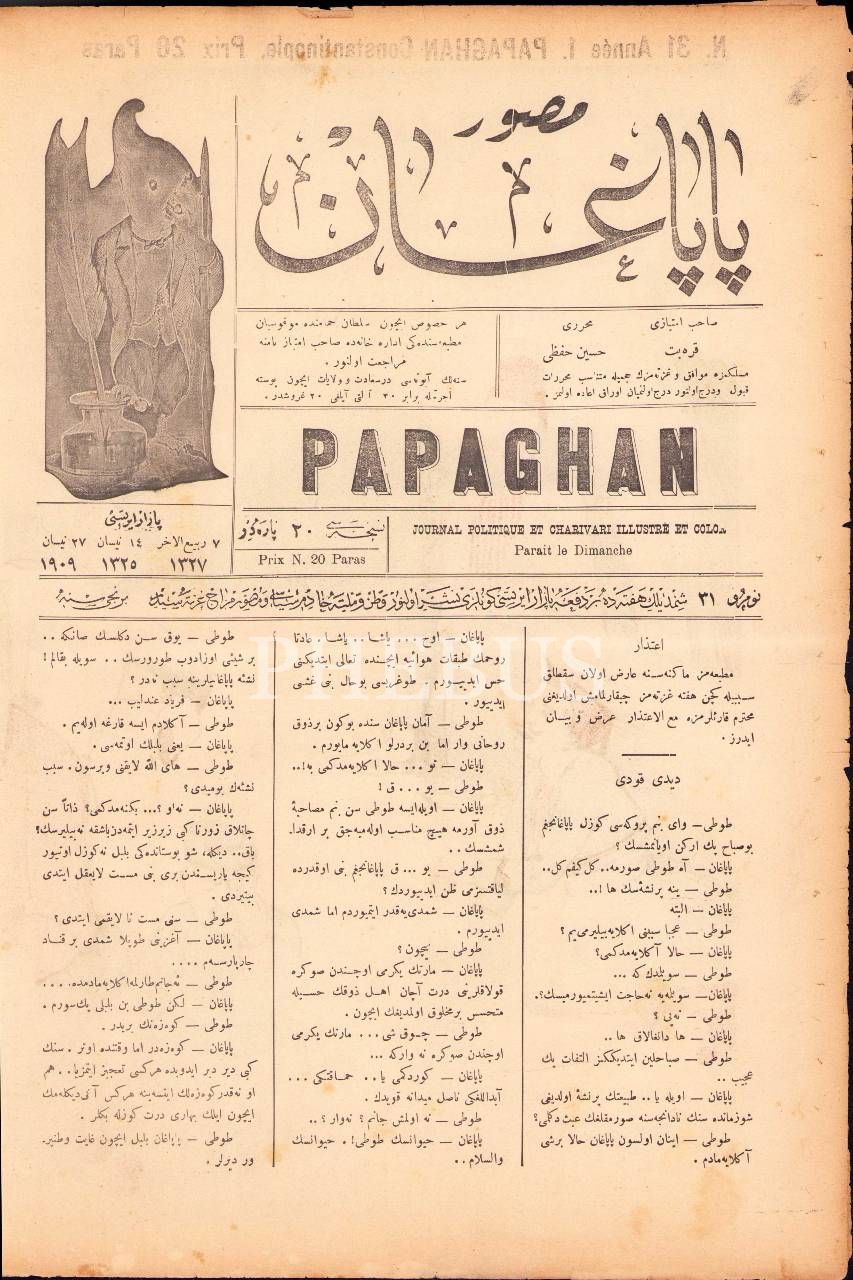 N. 31 Année 1. PAPAGHAN Constantinople. Prix 20 Paras
مصور
پاپاغان
صاحب امتیازی
محرری
قره‌بت
حسین حفظی
مسلکمزه موافق و غزته‌مزك حجمیله متناسب محررات
قبول ودرج اولنور درج اولنمیان اوراق اعاده اولنمز .
هر خصوص ایچون سلطان حمامنده
مطبعه‌سنده‌کی اداره خانه‌ده صاحب امتیاز نامنه
مراجعت اولنور .
سنه‌لك آبونه‌سی درسعادت و ولایات ایچون پوسته
اجرتیله برابر ٣٠ آلتی آیلغی ٢٠ غروشدر .
PAPAGHAN
JOURNAL POLITIQUE ET CHARIVARI ILLUSTRÉ ET COLO
Parait le Dimanche
نسخه‌سی ٢٠ پاره‌در
Prix N. 20 Paras
پازار ایرتسی
٧ ربیع الاخر ١٤ نیسان ٢٧ نیسان
١٣٢٧ ١٣٢٥ ١٩٠٩
نومرو ٣١ شمدیلك هفته‌ده بر دفعه پازار ایرتسی کونلری نشر اولنور وطن و ملته خادم سیاسی و مصور مزاح غزته‌سیدر برنجی سنه
اعتذار
مطبعه‌مز ماکنه‌سنه عارض اولان سقطلق
سببیله کچن هفته غزته‌مز چیقارلمامش اولدیغنی
محترم قارئلرمزه مع الاعتذار عرض و بیان
ایدرز .
دیدی قودی
طوطی – وای بنم پروکه‌سی کوزل پاپاغانجغم
بو صباح پك ارکن اویانمشسك ؟
پاپاغان – آه طوطی صورمه .. کل کیفم کل ..
طوطی – ینه پرنشئه‌سك ها !..
پاپاغان – البته
طوطی – عجبا سببنی اکلایه‌بیلیرمی‌یم ؟
پاپاغان – حالا آکلایه‌مدکمی ؟
طوطی – سویلمدك که ...
پاپاغان – سویلمه‌یه نه حاجت ایشیتمیورمیسك ؟.
طوطی – نه‌یی ؟
پاپاغان – ها دانغالاق ها ..
طوطی – صباحلین ایتدیککز التفات پك
عجیب ..
پاپاغان – اویله یا .. طبیعتك پرنشئه اولدیغی
شو زمانده سنك نادانجه‌سنه صورمقلغك عبث دکلمی ؟
طوطی – اینان اولسون پاپاغان حالا برشی
آکلایه‌مادم .
پاپاغان – اوح ... یاشا .. یاشا . عادتا
روحمك طبقات هوائیه ایچنده تعالی ایتدیکنی
حس ایدییورم . طوغریسی بوحال بنی غشی
ایدییور .
طوطی – آمان پاپاغان سنده بوکون برذوق
روحانی وار اما بن بردرلو اکلایه‌مایورم .
پاپاغان – تو ... حالا اکلایه‌مدکمی به !..
طوطی – یو ... ق !
پاپاغان – اویله‌ایسه طوطی سن بنم مصاحبهٔ
ذوق آورمه هیچ مناسب اوله‌میه‌جق بر ارقداشسك
شمسك ..
طوطی – یو ... ق پاپاغانجغم بنی اوقدرده
لیاقتسزمی ظن ایدییوردك ؟
پاپاغان – شمدی‌یه‌قدر ایتمیوردم اما شمدی
ایدییورم .
طوطی – نیچون ؟
پاپاغان – مارتك یکرمی اوچندن صوکره
قولاقلرنی درت آچان اهل ذوقك حسیله
متحسس برمخلوق اولمدیغك ایچون .
طوطی – چوق شی ... مارتك یکرمی
اوچندن صوکره نه وارکه ...
پاپاغان – کوردکمی یا .. حماقتکی ...
آبداللغکی ناصل میدانه قویدك .
طوطی – نه اولمش جانم ؟ نه‌وار ؟ ..
پاپاغان – حیوانسك طوطی !. حیوانسك
والسلام ..
طوطی – یوق سن دکلسك صانکه ..
بر شیئی اوزادوب طورورسك .. سویله بقالم !
نشئهٔ پاپاغانیلرینه سبب نه‌در ؟
پاپاغان – فریاد عندلیب ...
طوطی – آکلادم ایسه قارغه اوله‌یم .
پاپاغان – یعنی بلبلك اوتمه‌سی .
طوطی – های الله لایقنی ویرسون . سبب
نشئه‌ك بومیدی ؟
پاپاغان – نه‌او ؟... بکنمه‌دکمی ؟ ذاتاً سن
چاتلاق زورنا کبی زیرزیر ایتمه‌دن باشقه نه‌بیلیرسك ؟
باق .. دیکله، شو بوستانده‌کی بلبل نه‌کوزل اوتیور
کیجه یاریسندن بری بنی مست لایعقل ایتدی
بیتیردی .
طوطی – سنی مست لایعقلمی ایتدی ؟
پاپاغان – آغزینی طوپلا شمدی بر قناد
چارپارسه‌م ....
طوطی – نه‌جانم طارلمه اکلایه‌مادمده ....
پاپاغان – لکن طوطی بن بلبلی پك سورم .
طوطی – کوه‌زه‌نك بریدر .
پاپاغان – کوه‌زه‌در اما وقتنده اوتر . سنك
کبی دیر دیر ایدوبده هرکسی تعجیز ایتمزیا .. هم
او نه‌قدر کوه‌زه‌لك ایتسه‌ینه هرکس آنی دیکله‌مك
ایچون ایلك بهاری درت کوزله بکلر .
طوطی – پاپاغان بلبل ایچون غایت وطنپر-
ور دیرلر .
PHEBUS